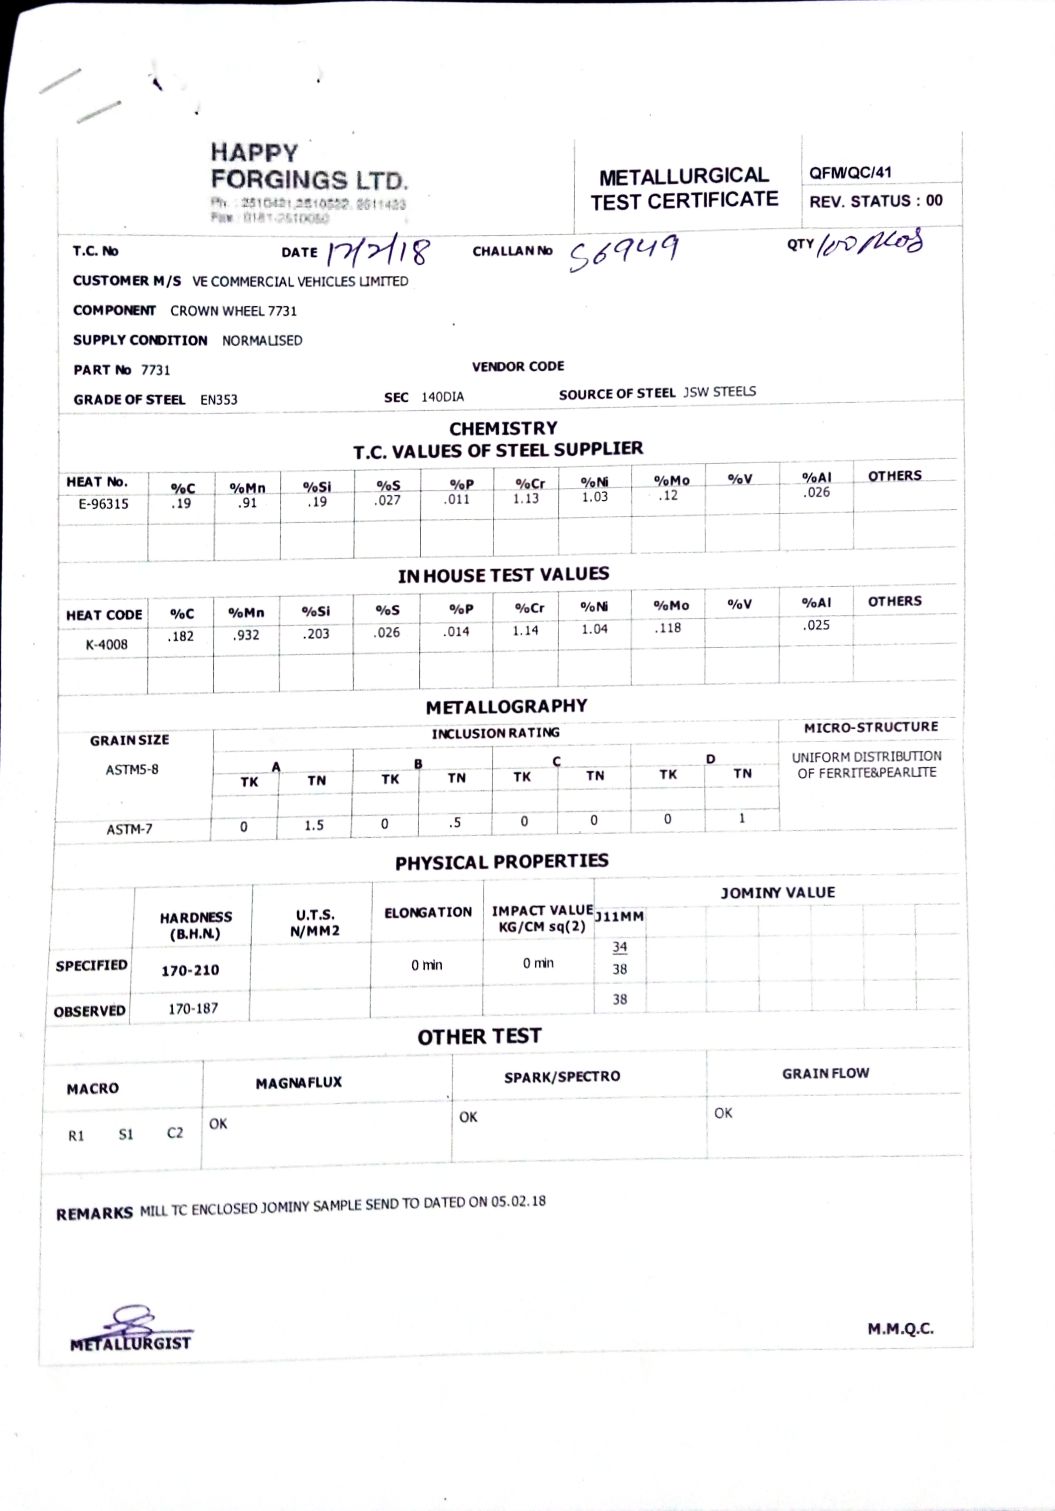 HAPPY
FORGINGS LTD.
METALLURGICAL
TEST CERTIFICATE
QFM/QC/41
REV. STATUS : 00
T.C. No DATE 17/2/18 CHALLAN No S6949 QTY 100
CUSTOMER M/S VE COMMERCIAL VEHICLES LIMITED
COMPONENT CROWN WHEEL 7731
SUPPLY CONDITION NORMALISED
PART No 7731 VENDOR CODE
GRADE OF STEEL EN353 SEC 140DIA SOURCE OF STEEL JSW STEELS
CHEMISTRY
T.C. VALUES OF STEEL SUPPLIER
HEAT No. %C %Mn %Si %S %P %Cr %Ni %Mo %V %Al OTHERS
E-96315 .19 .91 .19 .027 .011 1.13 1.03 .12 .026
IN HOUSE TEST VALUES
HEAT CODE %C %Mn %Si %S %P %Cr %Ni %Mo %V %Al OTHERS
K-4008 .182 .932 .203 .026 .014 1.14 1.04 .118 .025
METALLOGRAPHY
GRAIN SIZE INCLUSION RATING MICRO-STRUCTURE
ASTM5-8 A B C D UNIFORM DISTRIBUTION
TK TN TK TN TK TN TK TN OF FERRITE&PEARLITE
ASTM-7 0 1.5 0 .5 0 0 0 1
PHYSICAL PROPERTIES
JOMINY VALUE
HARDNESS U.T.S. ELONGATION IMPACT VALUE J11MM
(B.H.N.) N/MM2 KG/CM sq(2)
SPECIFIED 170-210 0 min 0 min 34
38
OBSERVED 170-187 38
OTHER TEST
MACRO MAGNAFLUX SPARK/SPECTRO GRAIN FLOW
R1 S1 C2 OK OK OK
REMARKS MILL TC ENCLOSED JOMINY SAMPLE SEND TO DATED ON 05.02.18
METALLURGIST M.M.Q.C.